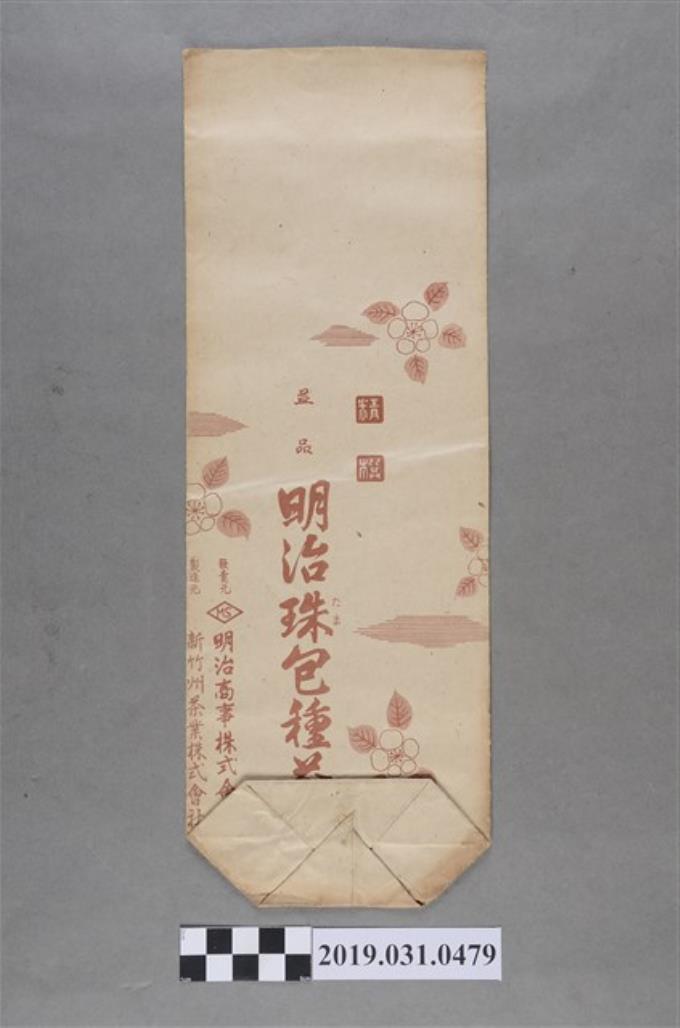 精撰
並品
明治珠包種茶
たま
發賣元
MS
明治商事株式會
製造元
新竹州茶業株式會社
2019.031.0479